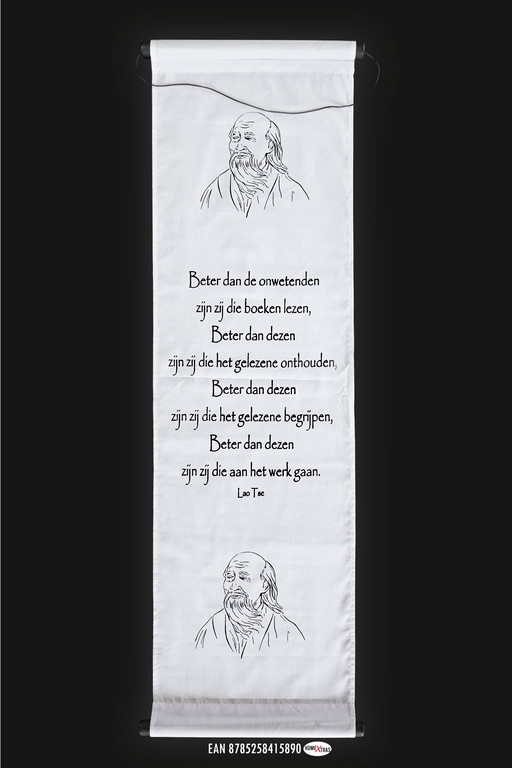 Beter dan de onwetenden
zijn zij die boeken lezen,
Beter dan dezen
zijn zij die het gelezene onthouden,
Beter dan dezen
zijn zij die het gelezene begrijpen,
Beter dan dezen
zijn zij die aan het werk gaan.
Lao Tse
EAN 8785258415890 HOMEXTRAS